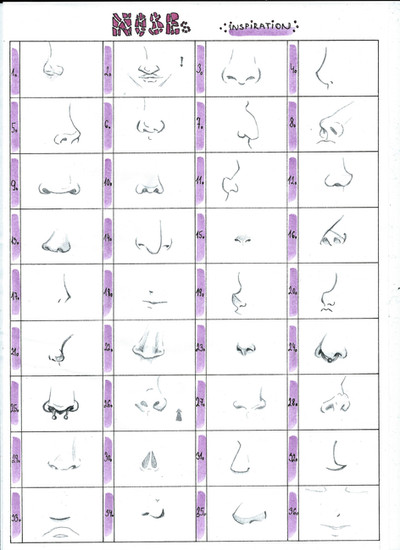 NOSES INSPIRATION
1. 2. ! 3. 4.
5. 6. 7. 8.
9. 10. 11. 12.
13. 14. 15. 16.
17. 18. 19. 20.
21. 22. 23. 24.
25. 26. 27. 28.
29. 30. 31. 32.
33. 34. 35. 36.